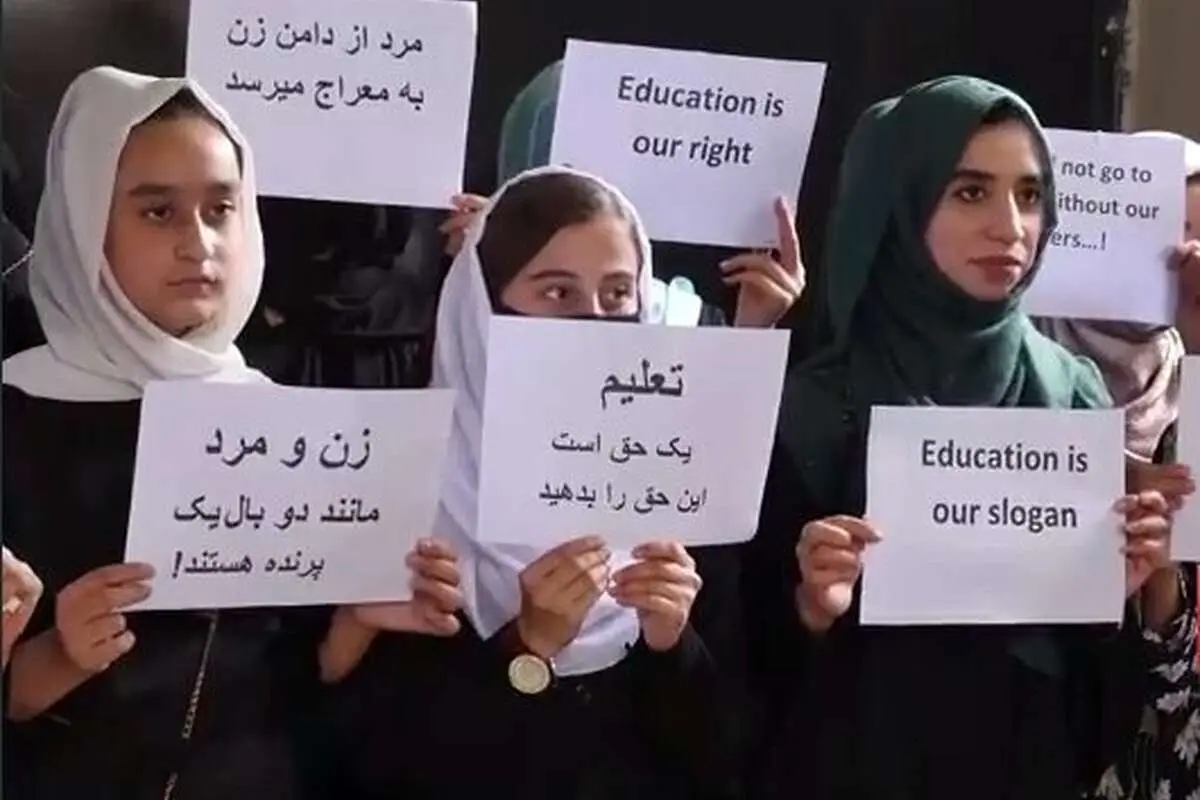 مرد از دامن زن
به معراج میرسد
Education is
our right
not go to
ithout our
ers...!
زن و مرد
مانند دو بال یک
پرنده هستند!
تعلیم
یک حق است
این حق را بدهید
Education is
our slogan